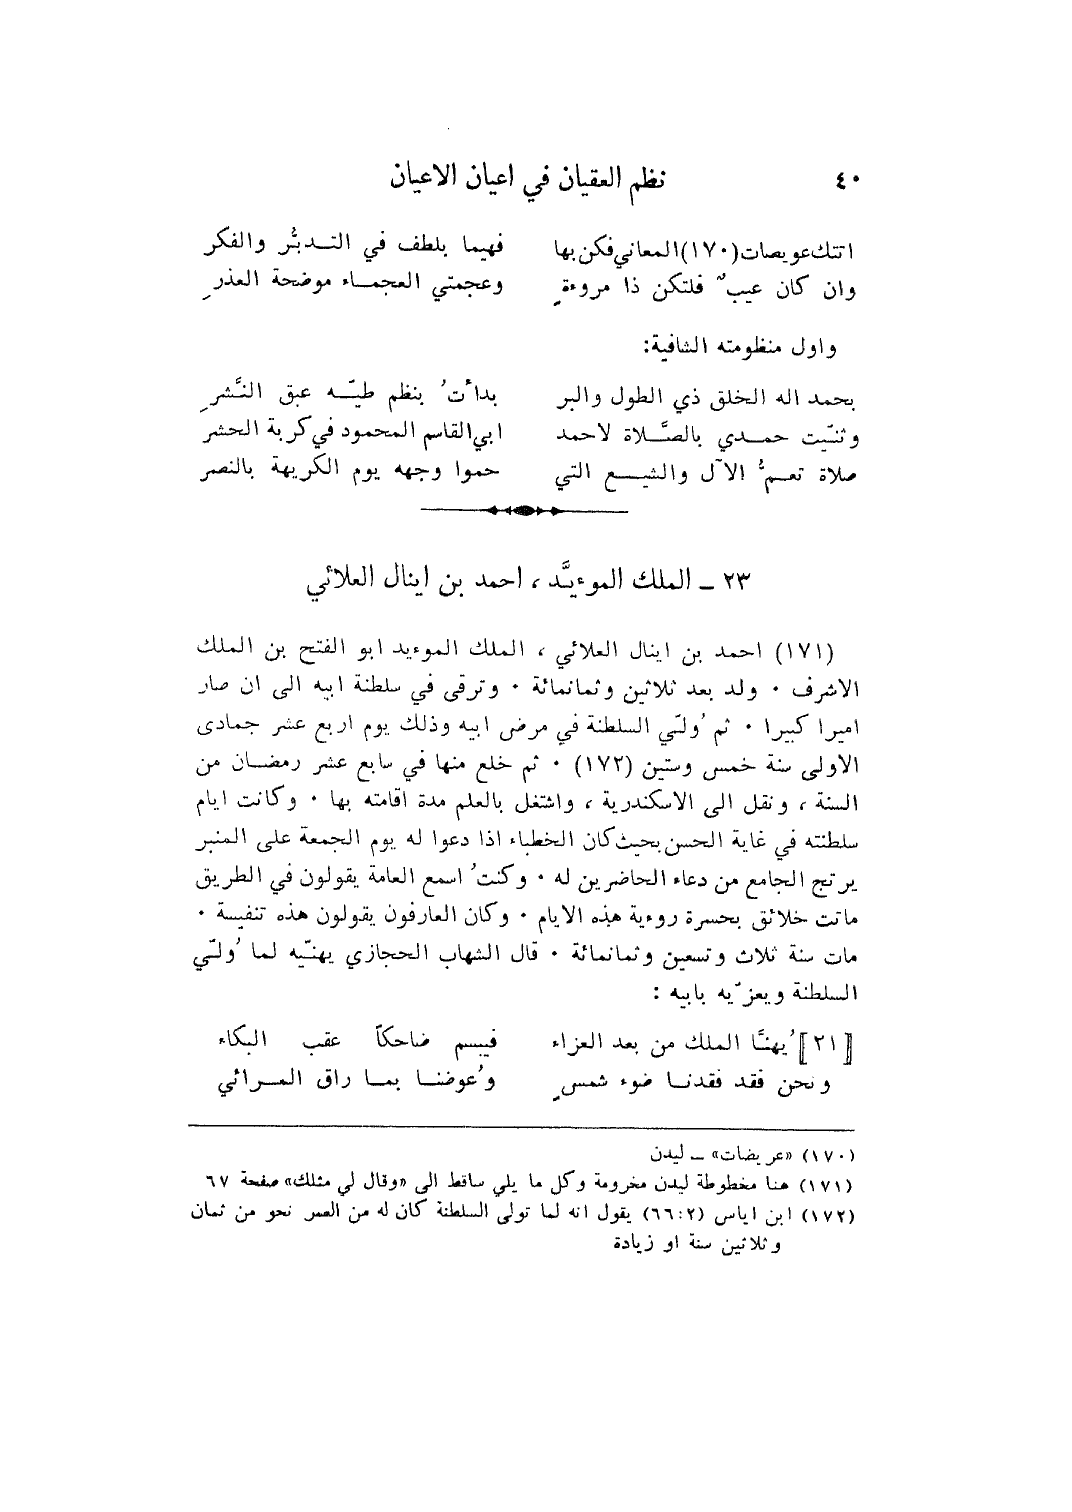 ٤٠ نظم العقيان في اعيان الاعيان
اتتك عويصات (١٧٠) المعاني فكن بها فهيما بلطف في التدبُّر والفكر
وان كان عيبٌ فلتكن ذا مروءةٍ وعجمتي العجماء موضحة العذرِ
واول منظومته الشافية:
بحمد اله الخلق ذي الطول والبر بدأتُ بنظم طيّه عبق النَّشرِ
وثنّيت حمدي بالصَّلاة لاحمد ابي القاسم المحمود في كربة الحشر
صلاة تعمُّ الآل والشيع التي حموا وجهه يوم الكريهة بالنصر
٢٣ ـ الملك الموءيَّد ، احمد بن اينال العلائي
(١٧١) احمد بن اينال العلائي ، الملك الموءيد ابو الفتح بن الملك
الاشرف ٠ ولد بعد ثلاثين وثمانمائة ٠ وترقى في سلطنة ابيه الى ان صار
اميرا كبيرا ٠ ثم وُلّي السلطنة في مرض ابيه وذلك يوم اربع عشر جمادى
الاولى سنة خمس وستين (١٧٢) ٠ ثم خلع منها في سابع عشر رمضان من
السنة ، ونقل الى الاسكندرية ، واشتغل بالعلم مدة اقامته بها ٠ وكانت ايام
سلطنته في غاية الحسن بحيث كان الخطباء اذا دعوا له يوم الجمعة على المنبر
يرتج الجامع من دعاء الحاضرين له ٠ وكنتُ اسمع العامة يقولون في الطريق
ماتت خلائق بحسرة روءية هذه الايام ٠ وكان العارفون يقولون هذه تنفيسة ٠
مات سنة ثلاث وتسعين وثمانمائة ٠ قال الشهاب الحجازي يهنّيه لما وُلّي
السلطنة ويعزّيه بابيه :
[٢١] يُهنَّا الملك من بعد العزاء فيبسم ضاحكاً عقب البكاء
ونحن فقد فقدنا ضوء شمسٍ وعُوضنا بما راق المرائي
(١٧٠) «عريضات» ـ ليدن
(١٧١) هنا مخطوطة ليدن مخرومة وكل ما يلي ساقط الى «وقال لي مثلك» صفحة ٦٧
(١٧٢) ابن اياس (٢:٦٦) يقول انه لما تولى السلطنة كان له من العمر نحو من ثمان
وثلاثين سنة او زيادة